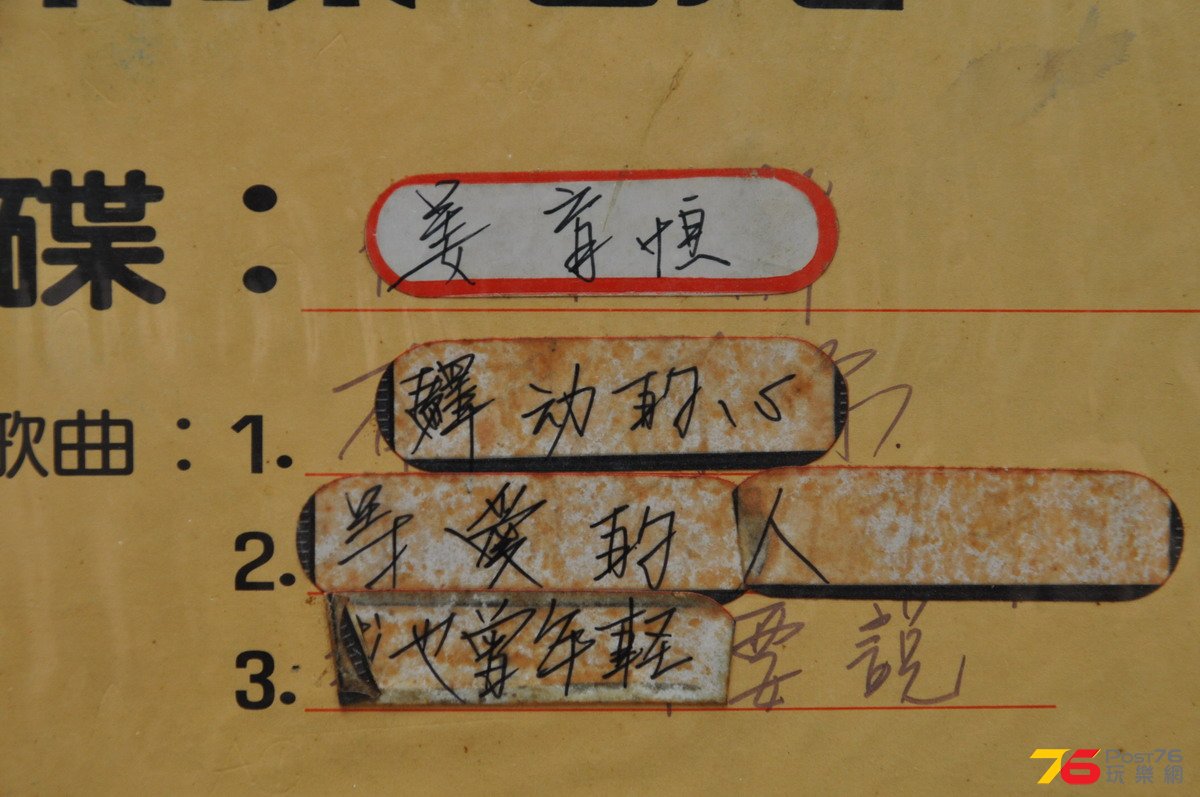 碟：姜育恒
歌曲：1. 驛动的心
2. 爱的人
3. 也曾年軽 要說
76 Post76
玩樂網